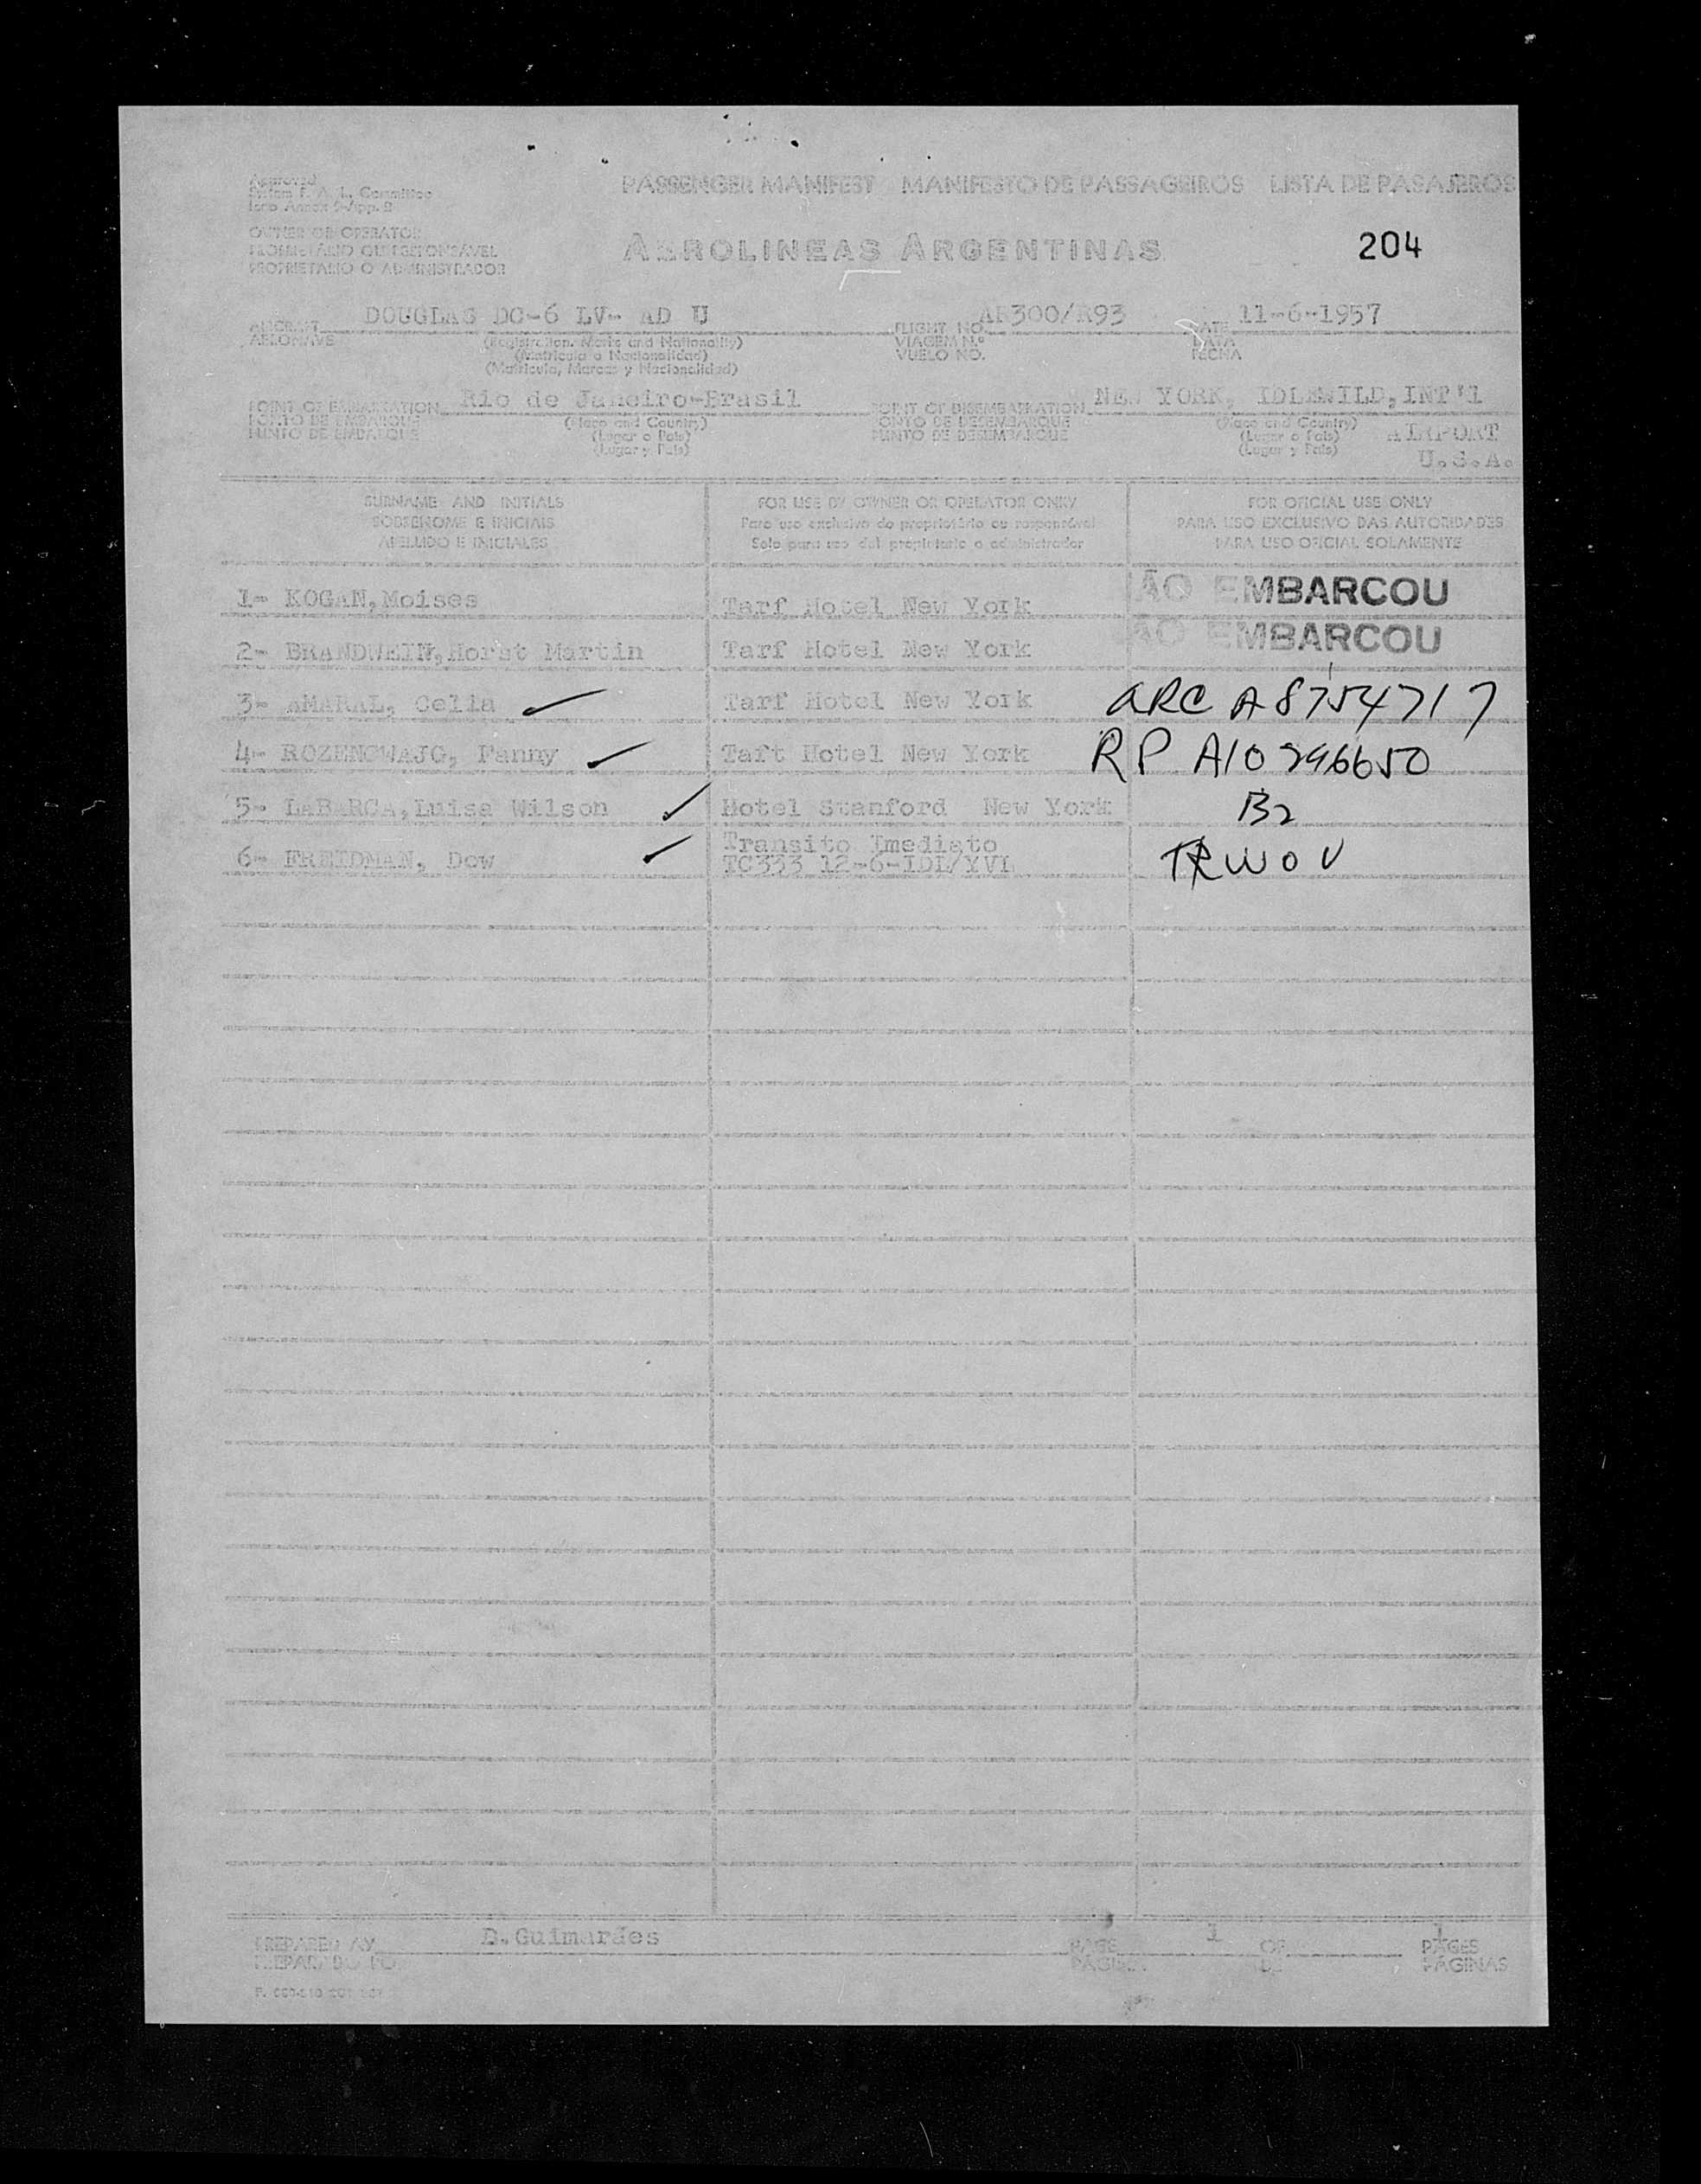 Approved
PASSENGER MANIFEST MANIFESTO DE PASSAGEIROS LISTA DE PASAJEROS
OWNER OR OPERATOR
PROPRIETARIO O ADMINISTRADOR
AEROLINEAS ARGENTINAS
204
AIRCRAFT DOUGLAS DC-6 LV- AD U
AERONAVE
(Registration, Marks and Nationality)
(Matricula o Nacionalidad)
(Matricula, Marcas y Nacionalidad)
FLIGHT NO. AR300/R93
VIAGEM N.º
VUELO NO.
DATE 11-6-1957
DATA
FECHA
POINT OF EMBARKATION Rio de Janeiro-Brasil
PONTO DE EMBARQUE
PUNTO DE EMBARQUE
(Place and Country)
(Lugar o País)
(Lugar y País)
POINT OF DISEMBARKATION NEW YORK, IDLEWILD, INT'l
PONTO DE DESEMBARQUE
PUNTO DE DESEMBARQUE
(Place and Country) AIRPORT
(Lugar o País)
(Lugar y País) U.S.A.
SURNAME AND INITIALS
SOBRENOME E INICIAIS
APELLIDO E INICIALES
FOR USE BY OWNER OR OPERATOR ONLY
Para uso exclusivo do proprietário ou responsável
Solo para uso del propietario o administrador
FOR OFICIAL USE ONLY
PARA USO EXCLUSIVO DAS AUTORIDADES
PARA USO OFICIAL SOLAMENTE
1- KOGAN, Moises Tarf Hotel New York ÃO EMBARCOU
2- BRANDWEIN, Horst Martin Tarf Hotel New York ÃO EMBARCOU
3- AMARAL, Celia Tarf Hotel New York ARC A8754717
4- ROZENCWAJG, Fanny Taft Hotel New York RP A10296650
5- LABARCA, Luisa Wilson Hotel Stanford New York B2
6- FREIDMAN, Dow Transito Imediato TRWOV
TC333 12-6-IDL/YVL
PREPARED BY D. Guimarães
PAGE 1 OF 1 PAGES
PAGINAS